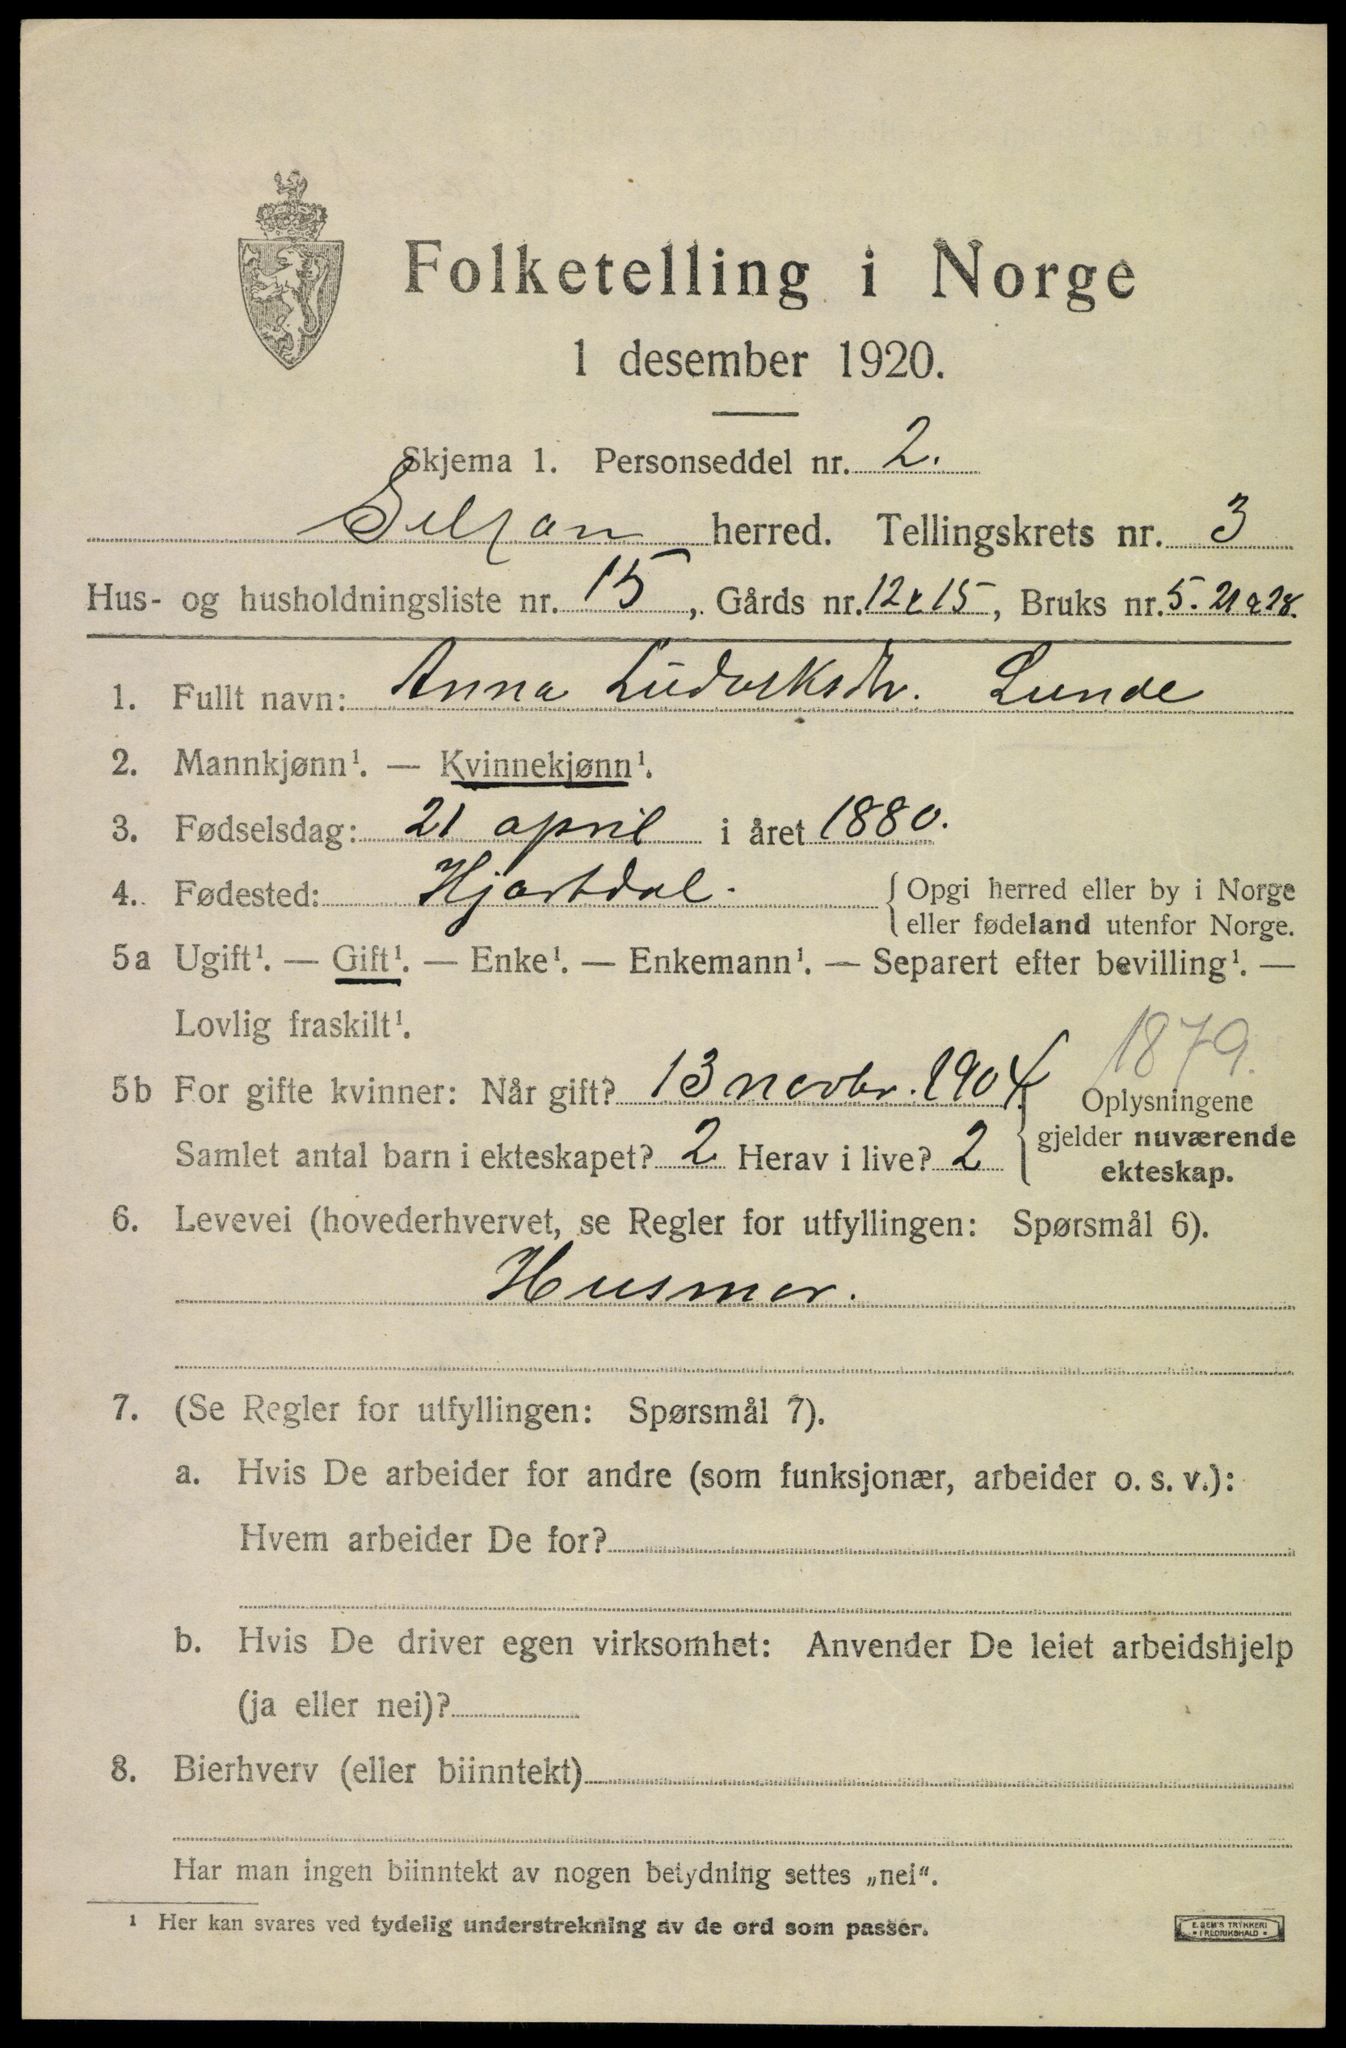 Folketelling i Norge
1 desember 1920.
Skjema 1. Personseddel nr. 2.
herred. Tellingskrets nr. 3
Hus- og husholdningsliste nr. 15, Gårds nr. 12 & 15, Bruks nr. 5. 21 & 28.
1. Fullt navn: Anna Ludviksdtr. Lunde
2. Mannkjønn¹. — Kvinnekjønn¹.
3. Fødselsdag: 21 april i året 1880.
4. Fødested: Hjartdal. {Opgi herred eller by i Norge
eller fødeland utenfor Norge.
5a Ugift¹. — Gift¹. — Enke¹. — Enkemann¹. — Separert efter bevilling¹. —
Lovlig fraskilt¹.
1879.
5b For gifte kvinner: Når gift? 13 novbr. 1904. Oplysningene
gjelder nuværende
ekteskap.
Samlet antal barn i ekteskapet? 2 Herav i live? 2
6. Levevei (hovederhvervet, se Regler for utfyllingen: Spørsmål 6).
Husmor.
7. (Se Regler for utfyllingen: Spørsmål 7).
a. Hvis De arbeider for andre (som funksjonær, arbeider o. s. v.):
Hvem arbeider De for?
b. Hvis De driver egen virksomhet: Anvender De leiet arbeidshjelp
(ja eller nei)?
8. Bierhverv (eller biinntekt)
Har man ingen biinntekt av nogen betydning settes „nei“.
¹ Her kan svares ved tydelig understrekning av de ord som passer.
E. SEM'S TRYKKERI
* FREDRIKSHALD *